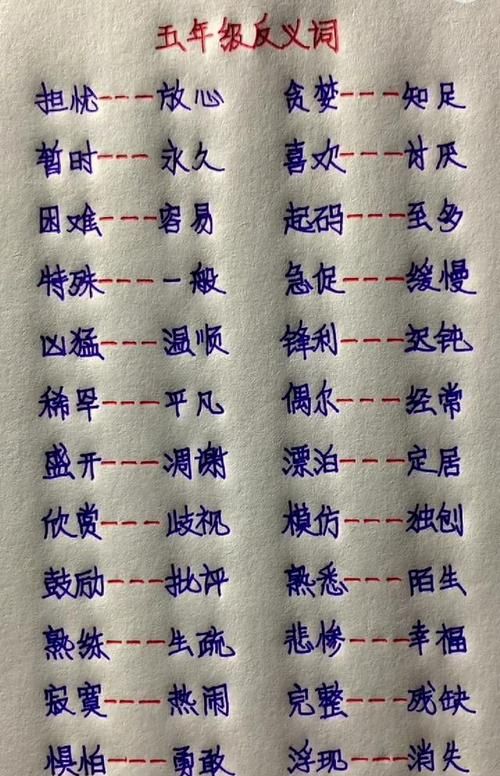 五年级反义词
担忧---放心 贪婪---知足
暂时---永久 喜欢---讨厌
困难---容易 起码---至多
特殊---一般 急促---缓慢
凶猛---温顺 锋利---迟钝
稀罕---平凡 偶尔---经常
盛开---凋谢 漂泊---定居
欣赏---歧视 模仿---独创
鼓励---批评 熟悉---陌生
熟练---生疏 悲惨---幸福
寂寞---热闹 完整---残缺
惧怕---勇敢 浮现---消失